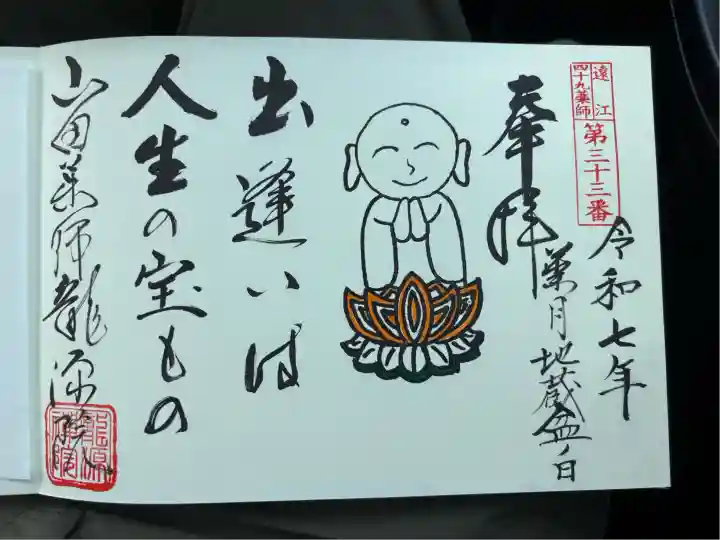 遠江
四十九薬師
第三十三番
令和七年
葉月地蔵盆ノ日
奉拝
出逢いは
人生の宝もの
山田薬師龍源院
龍源
禅院